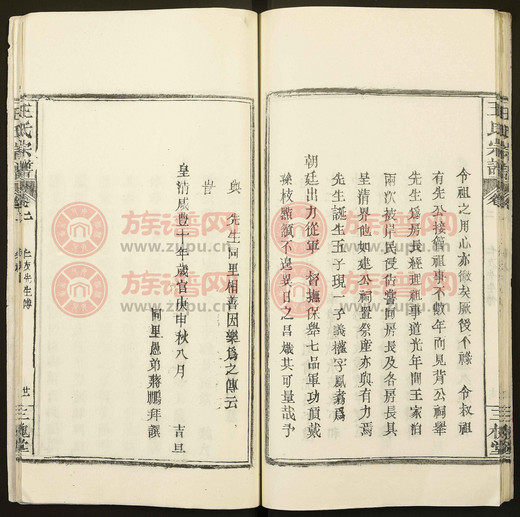 令祖之用心亦微矣厥後不祿 令叔祖
有先公接管祖事不數年而見背公祠舉
先生爲房長經理祖事道光年間王家泊
兩次被岸民侵佔嘗與房長及各房長具
呈清界他如建公祠置祭產亦與有力焉
先生誕生五子現一子義權字夙著爲
朝廷出力從軍 督撫保舉七品軍功頂戴
孫枝蕃衍不遑異日之昌熾其可量哉予
王氏宗譜
卷
三槐堂
與 先生同里相善因樂爲之傳云
皇清咸豐十年歲官庚申秋八月 吉旦
同里愚弟蔣鵬拜譔
王氏宗譜
卷
先生傳
三槐堂
族譜网
www.zupu.cn